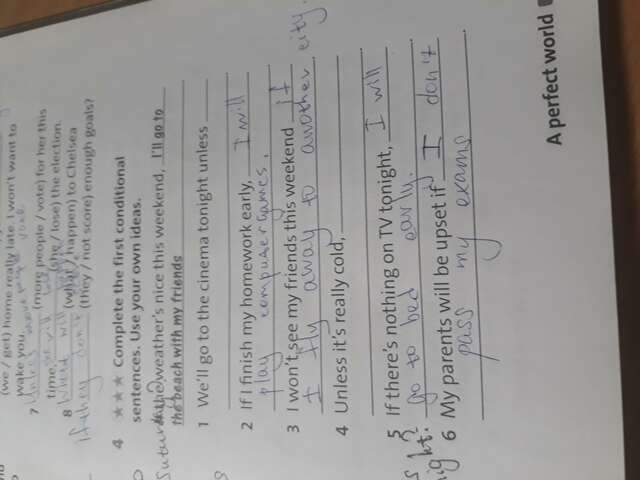 (we / get) home really late. I won't want to
wake you
7 Unless more people vote (more people / vote) for her this
time, (she / lose) the election.
8 (what / happen) to Chelsea
If they don't (they / not score) enough goals?
4 ★★★ Complete the first conditional
sentences. Use your own ideas.
weather's nice this weekend, I'll go to
the beach with my friends
1 We'll go to the cinema tonight unless
2 If I finish my homework early, I will
play computer games.
3 I won't see my friends this weekend if
I fly away to another city.
4 Unless it's really cold,
5 If there's nothing on TV tonight, I will
go to bed early.
6 My parents will be upset if I don't
pass my exams
A perfect world